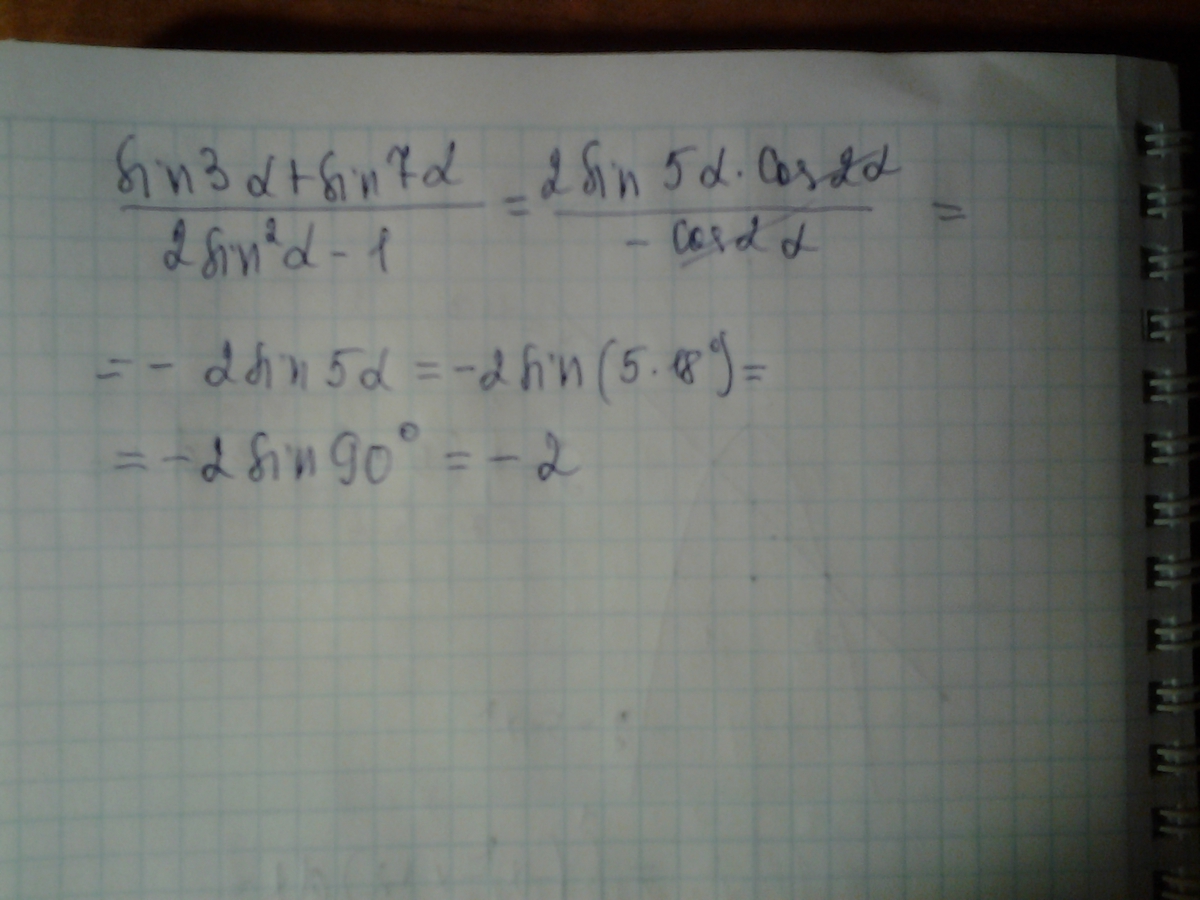 (sin3α+sin7α)/(2sin²α-1) = (2sin5α·cos2α)/(-cos2α) =
= - 2sin5α = -2sin(5·18°) =
= -2sin90° = -2